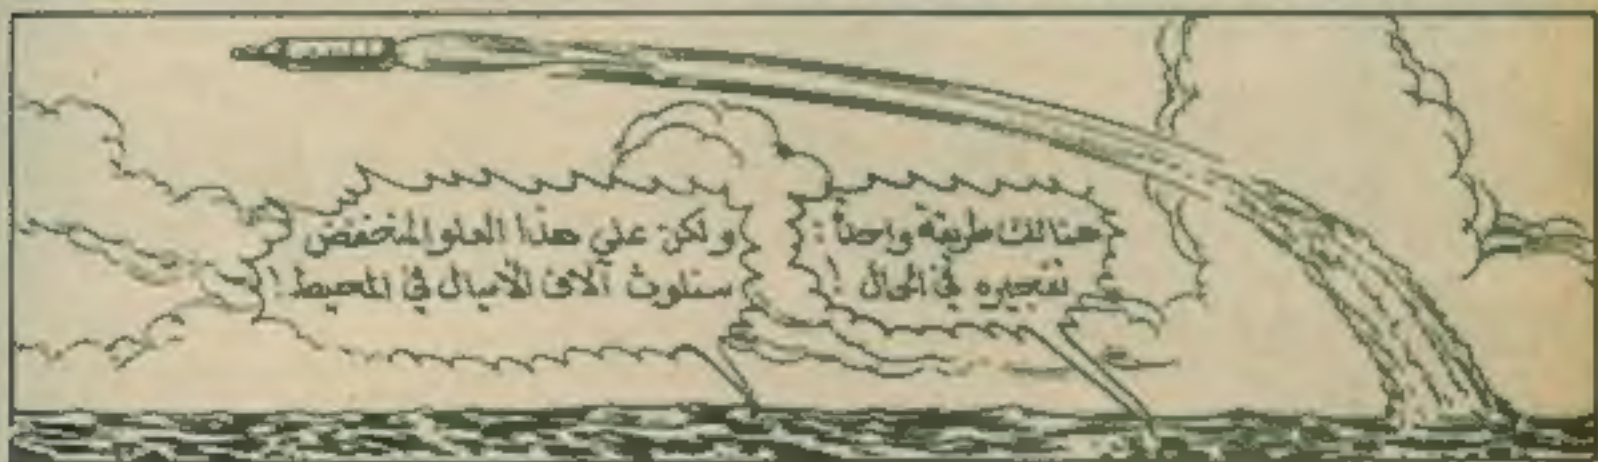 هنالك طريقة واحدة :
تفجيره في الحال !
ولكن علي هذا العلو المنخفض
سنلوث آلاف الأميال في المحيط !